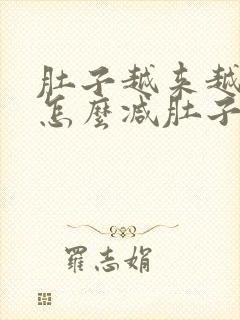 肚子越来越
怎麼减肚子
羅志娟